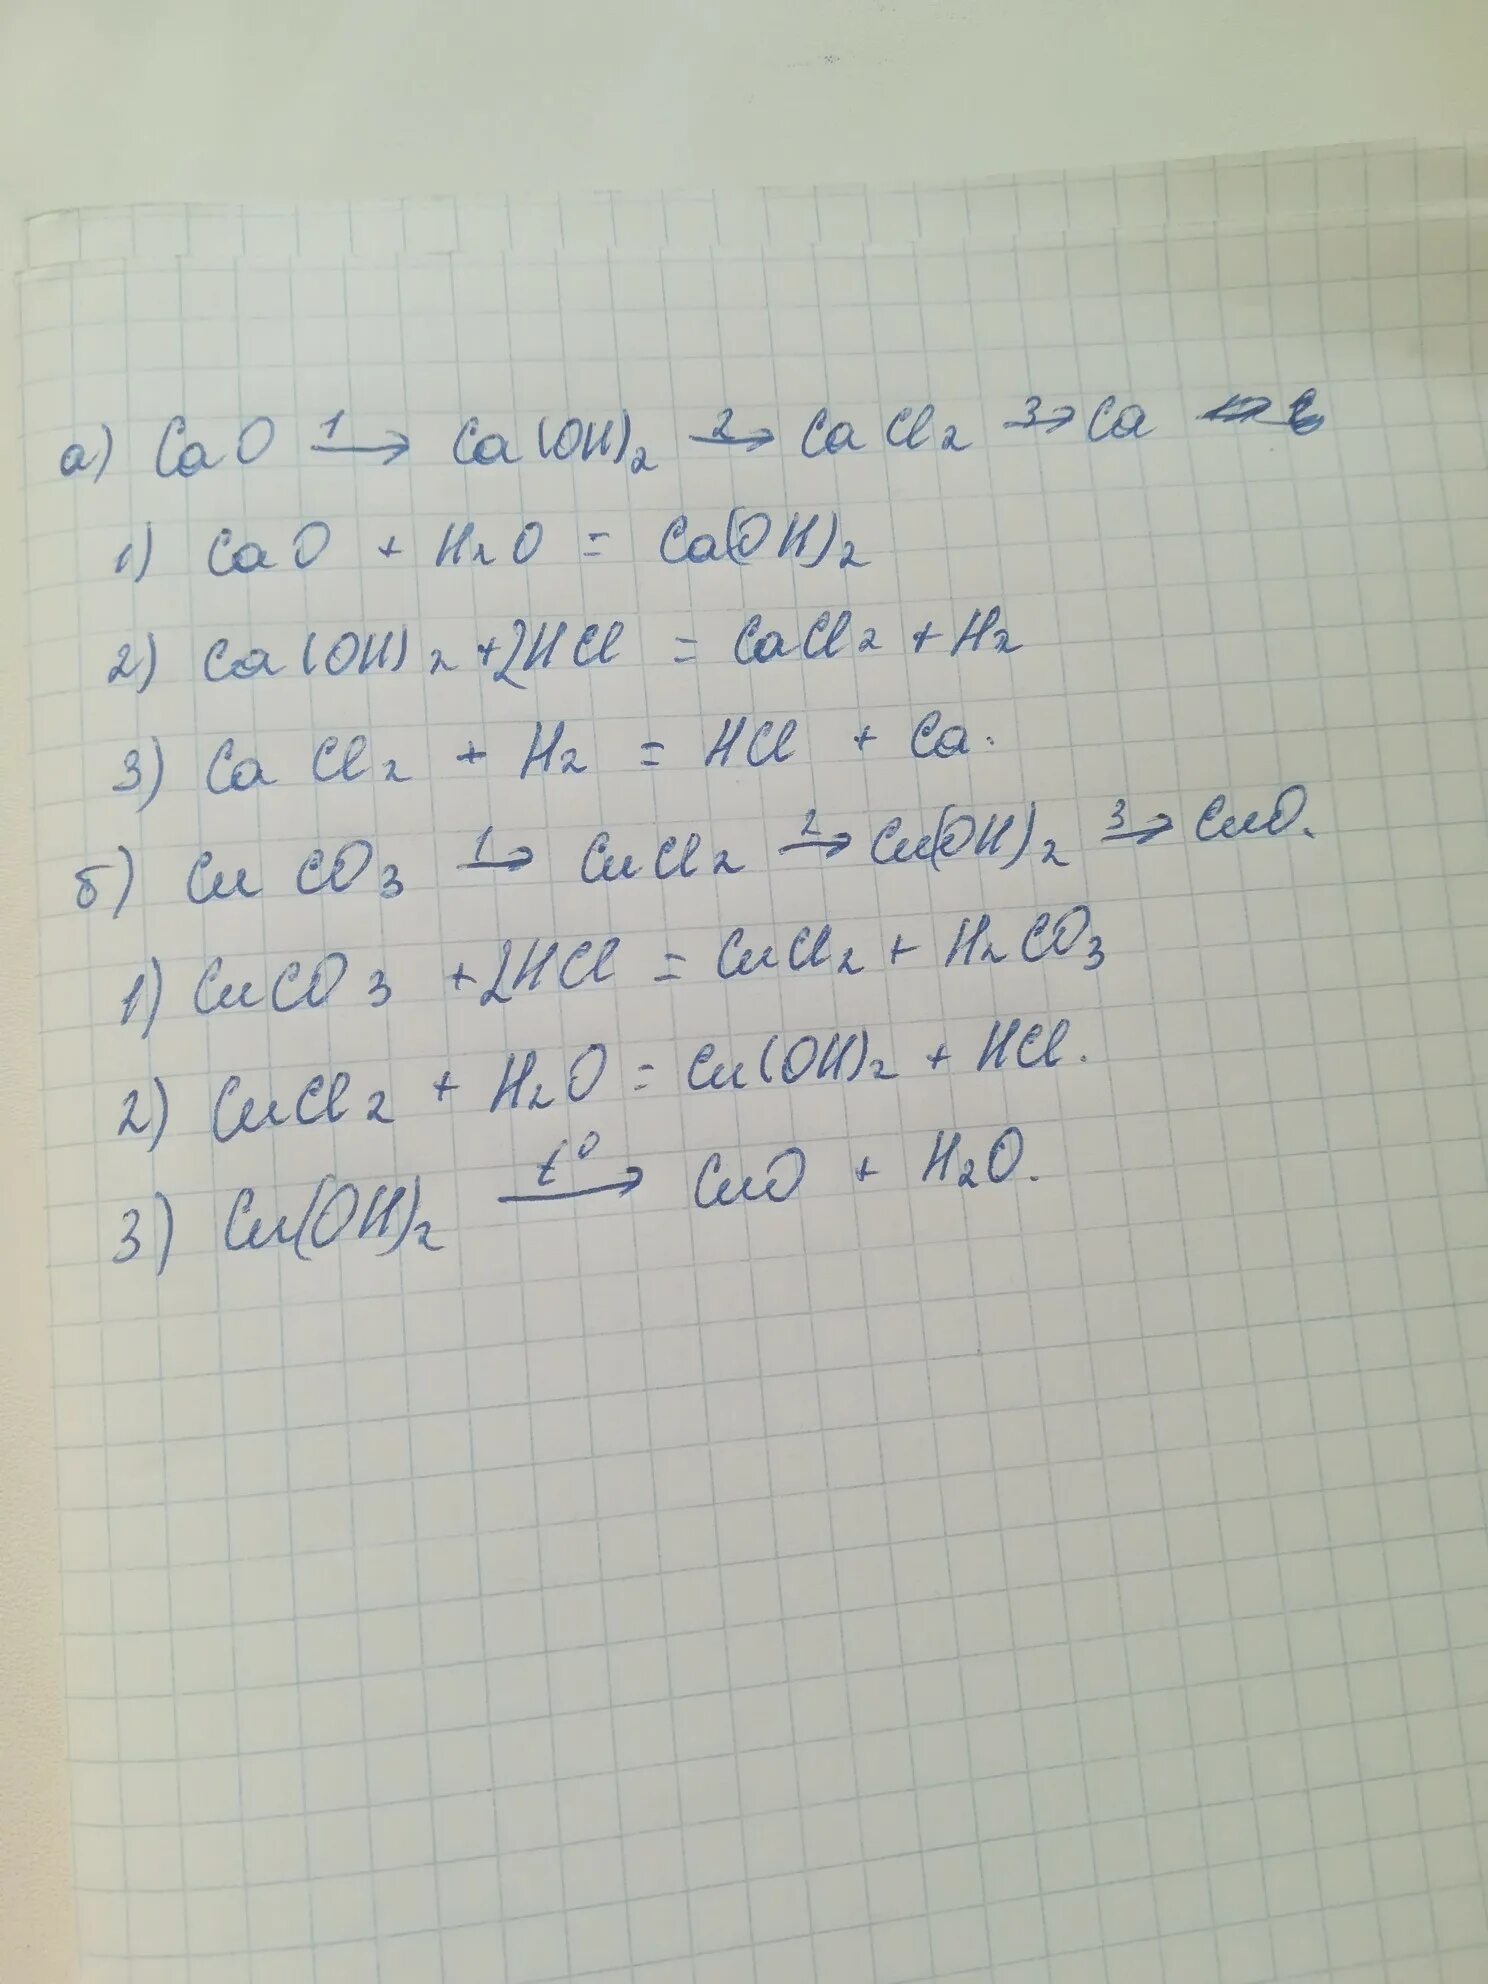 а) CaO 1→ Ca(OH)2 2→ CaCl2 3→ Ca
1) CaO + H2O = Ca(OH)2
2) Ca(OH)2 + 2HCl = CaCl2 + H2
3) CaCl2 + H2 = HCl + Ca.
б) CuCO3 1→ CuCl2 2→ Cu(OH)2 3→ CuO.
1) CuCO3 + 2HCl = CuCl2 + H2CO3
2) CuCl2 + H2O = Cu(OH)2 + HCl.
3) Cu(OH)2 t⁰→ CuO + H2O.